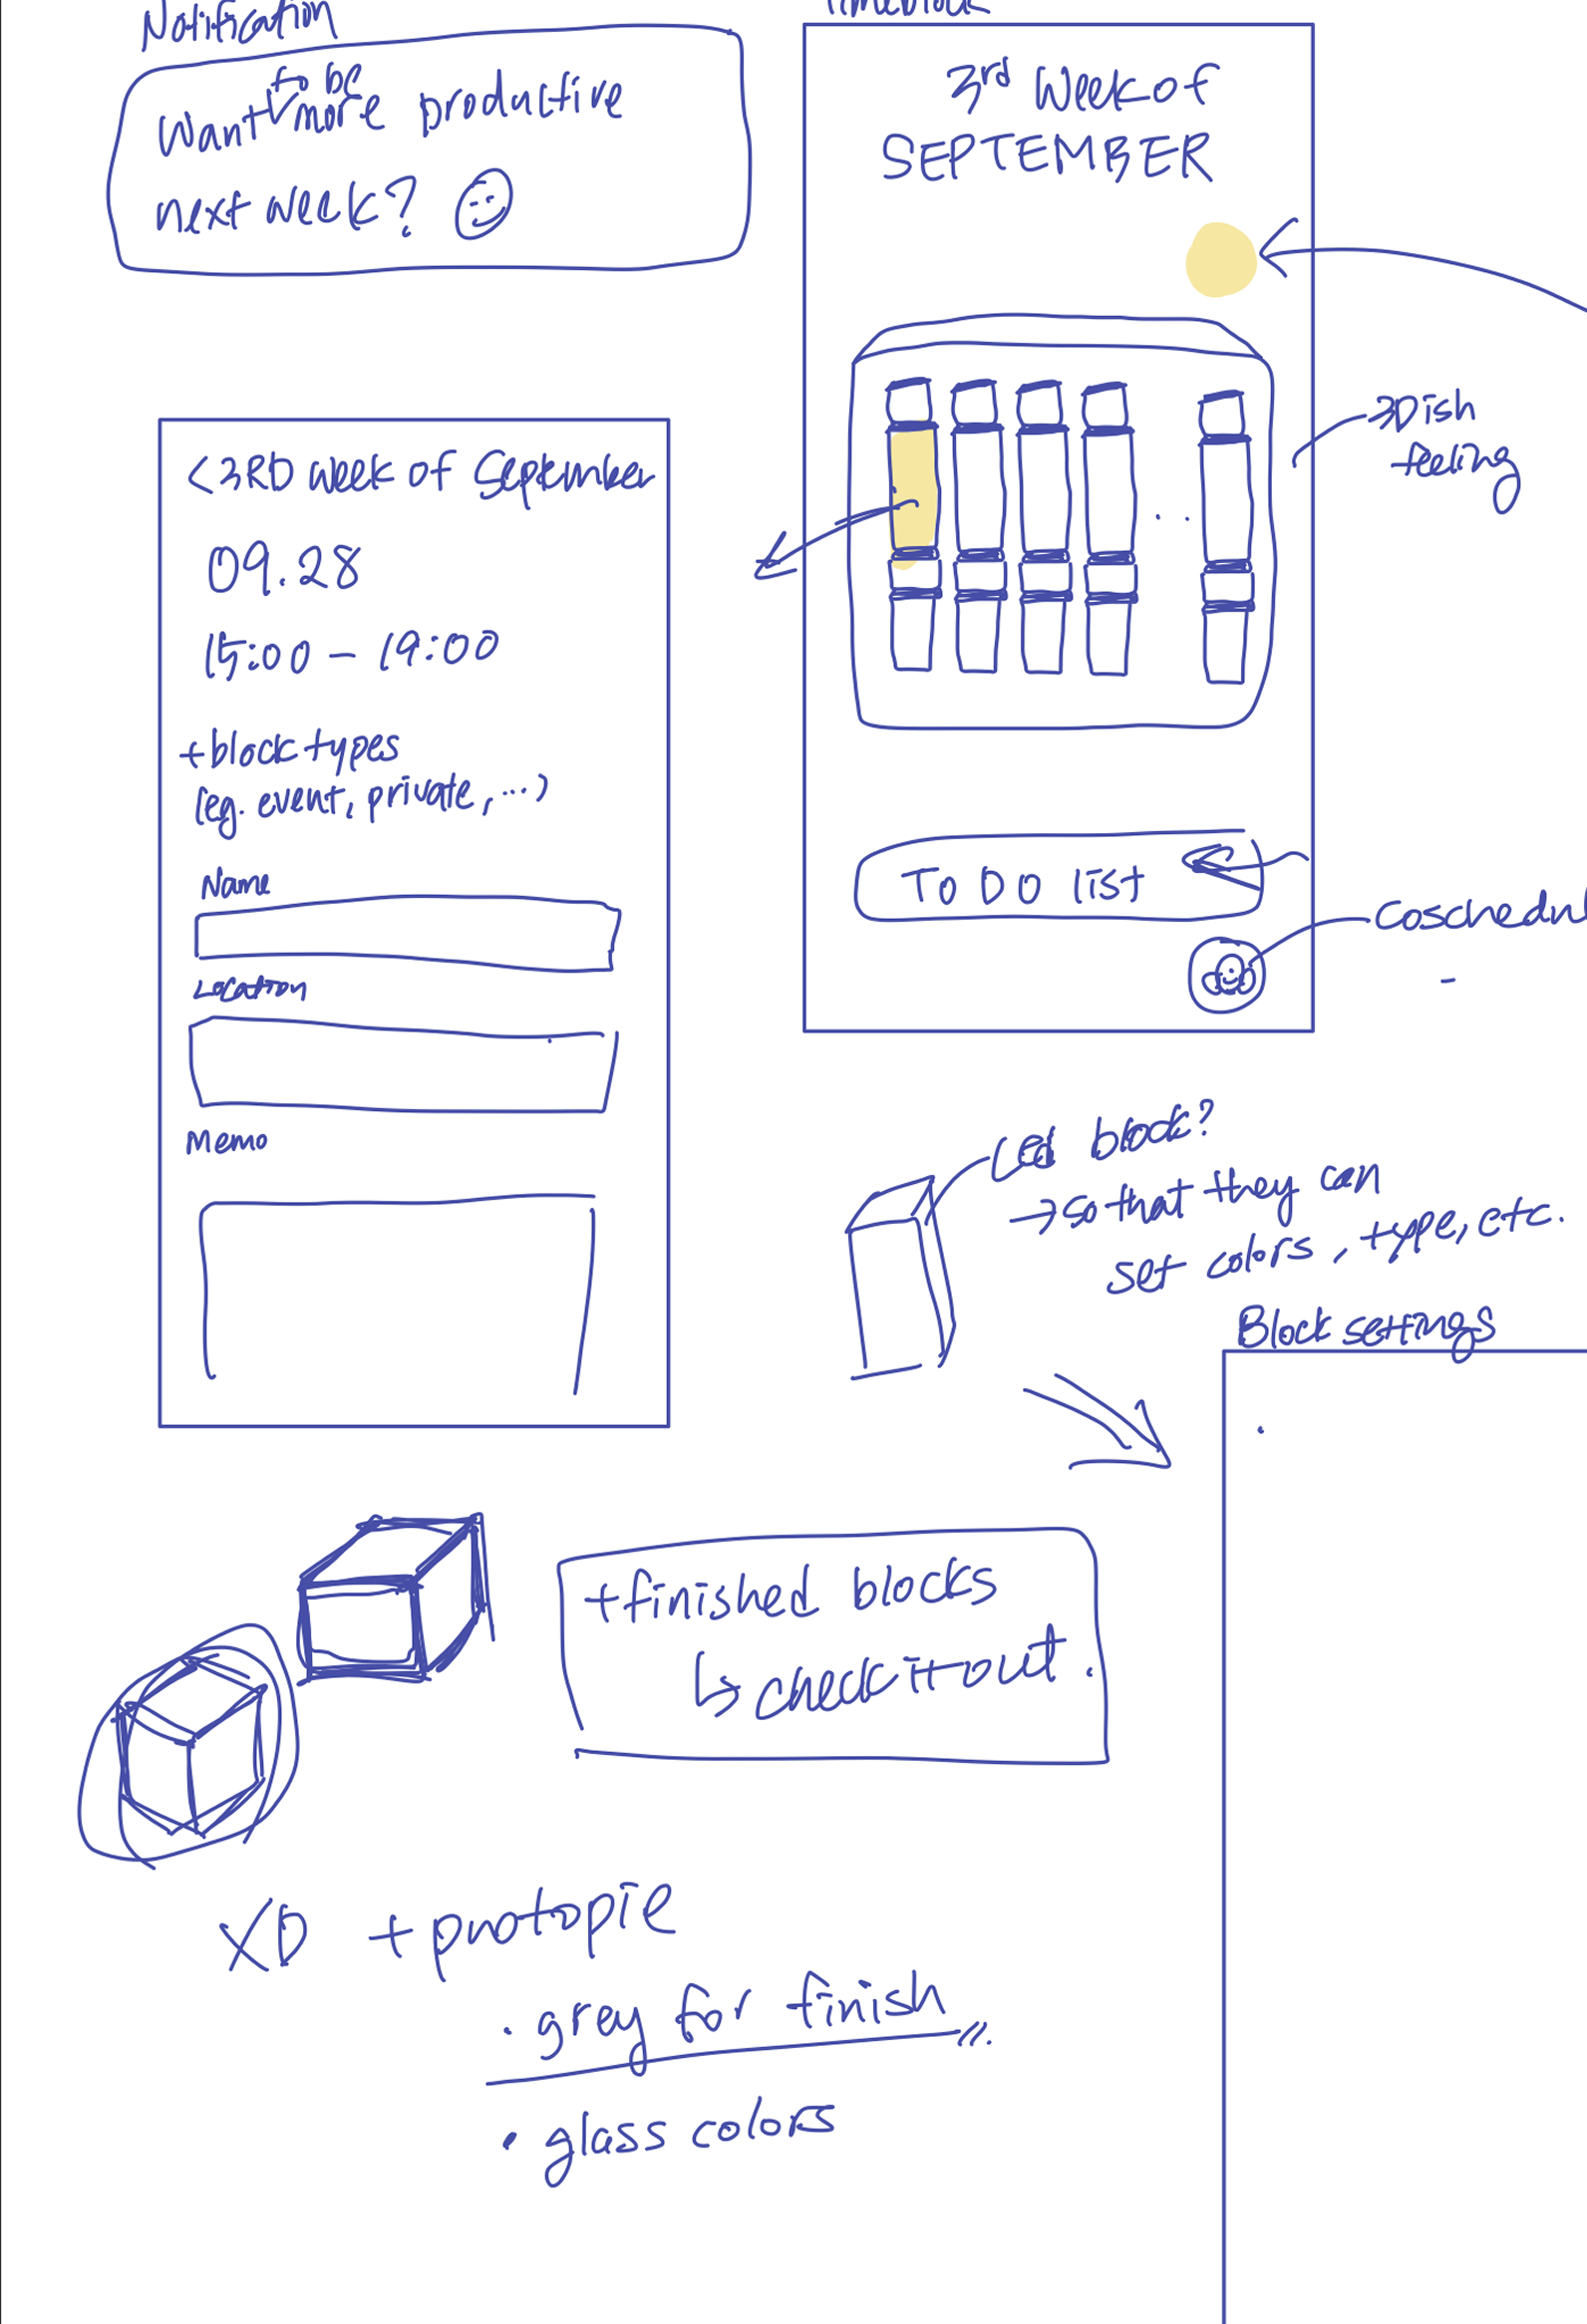 Notification
Want to be more productive
next week?
Timeblock
3rd Week of
SEPTEMBER
3Dish
feeling
< 3RD week of September
09.28
15:00 - 19:00
+block types
(eg. event, private, ...)
Name
Location
Memo
To DO list
block?
→so that they can
set colors, type, etc.
Block settings
+finished blocks
↳ check it out.
XD + protopie
· grey for finish
· glass colors